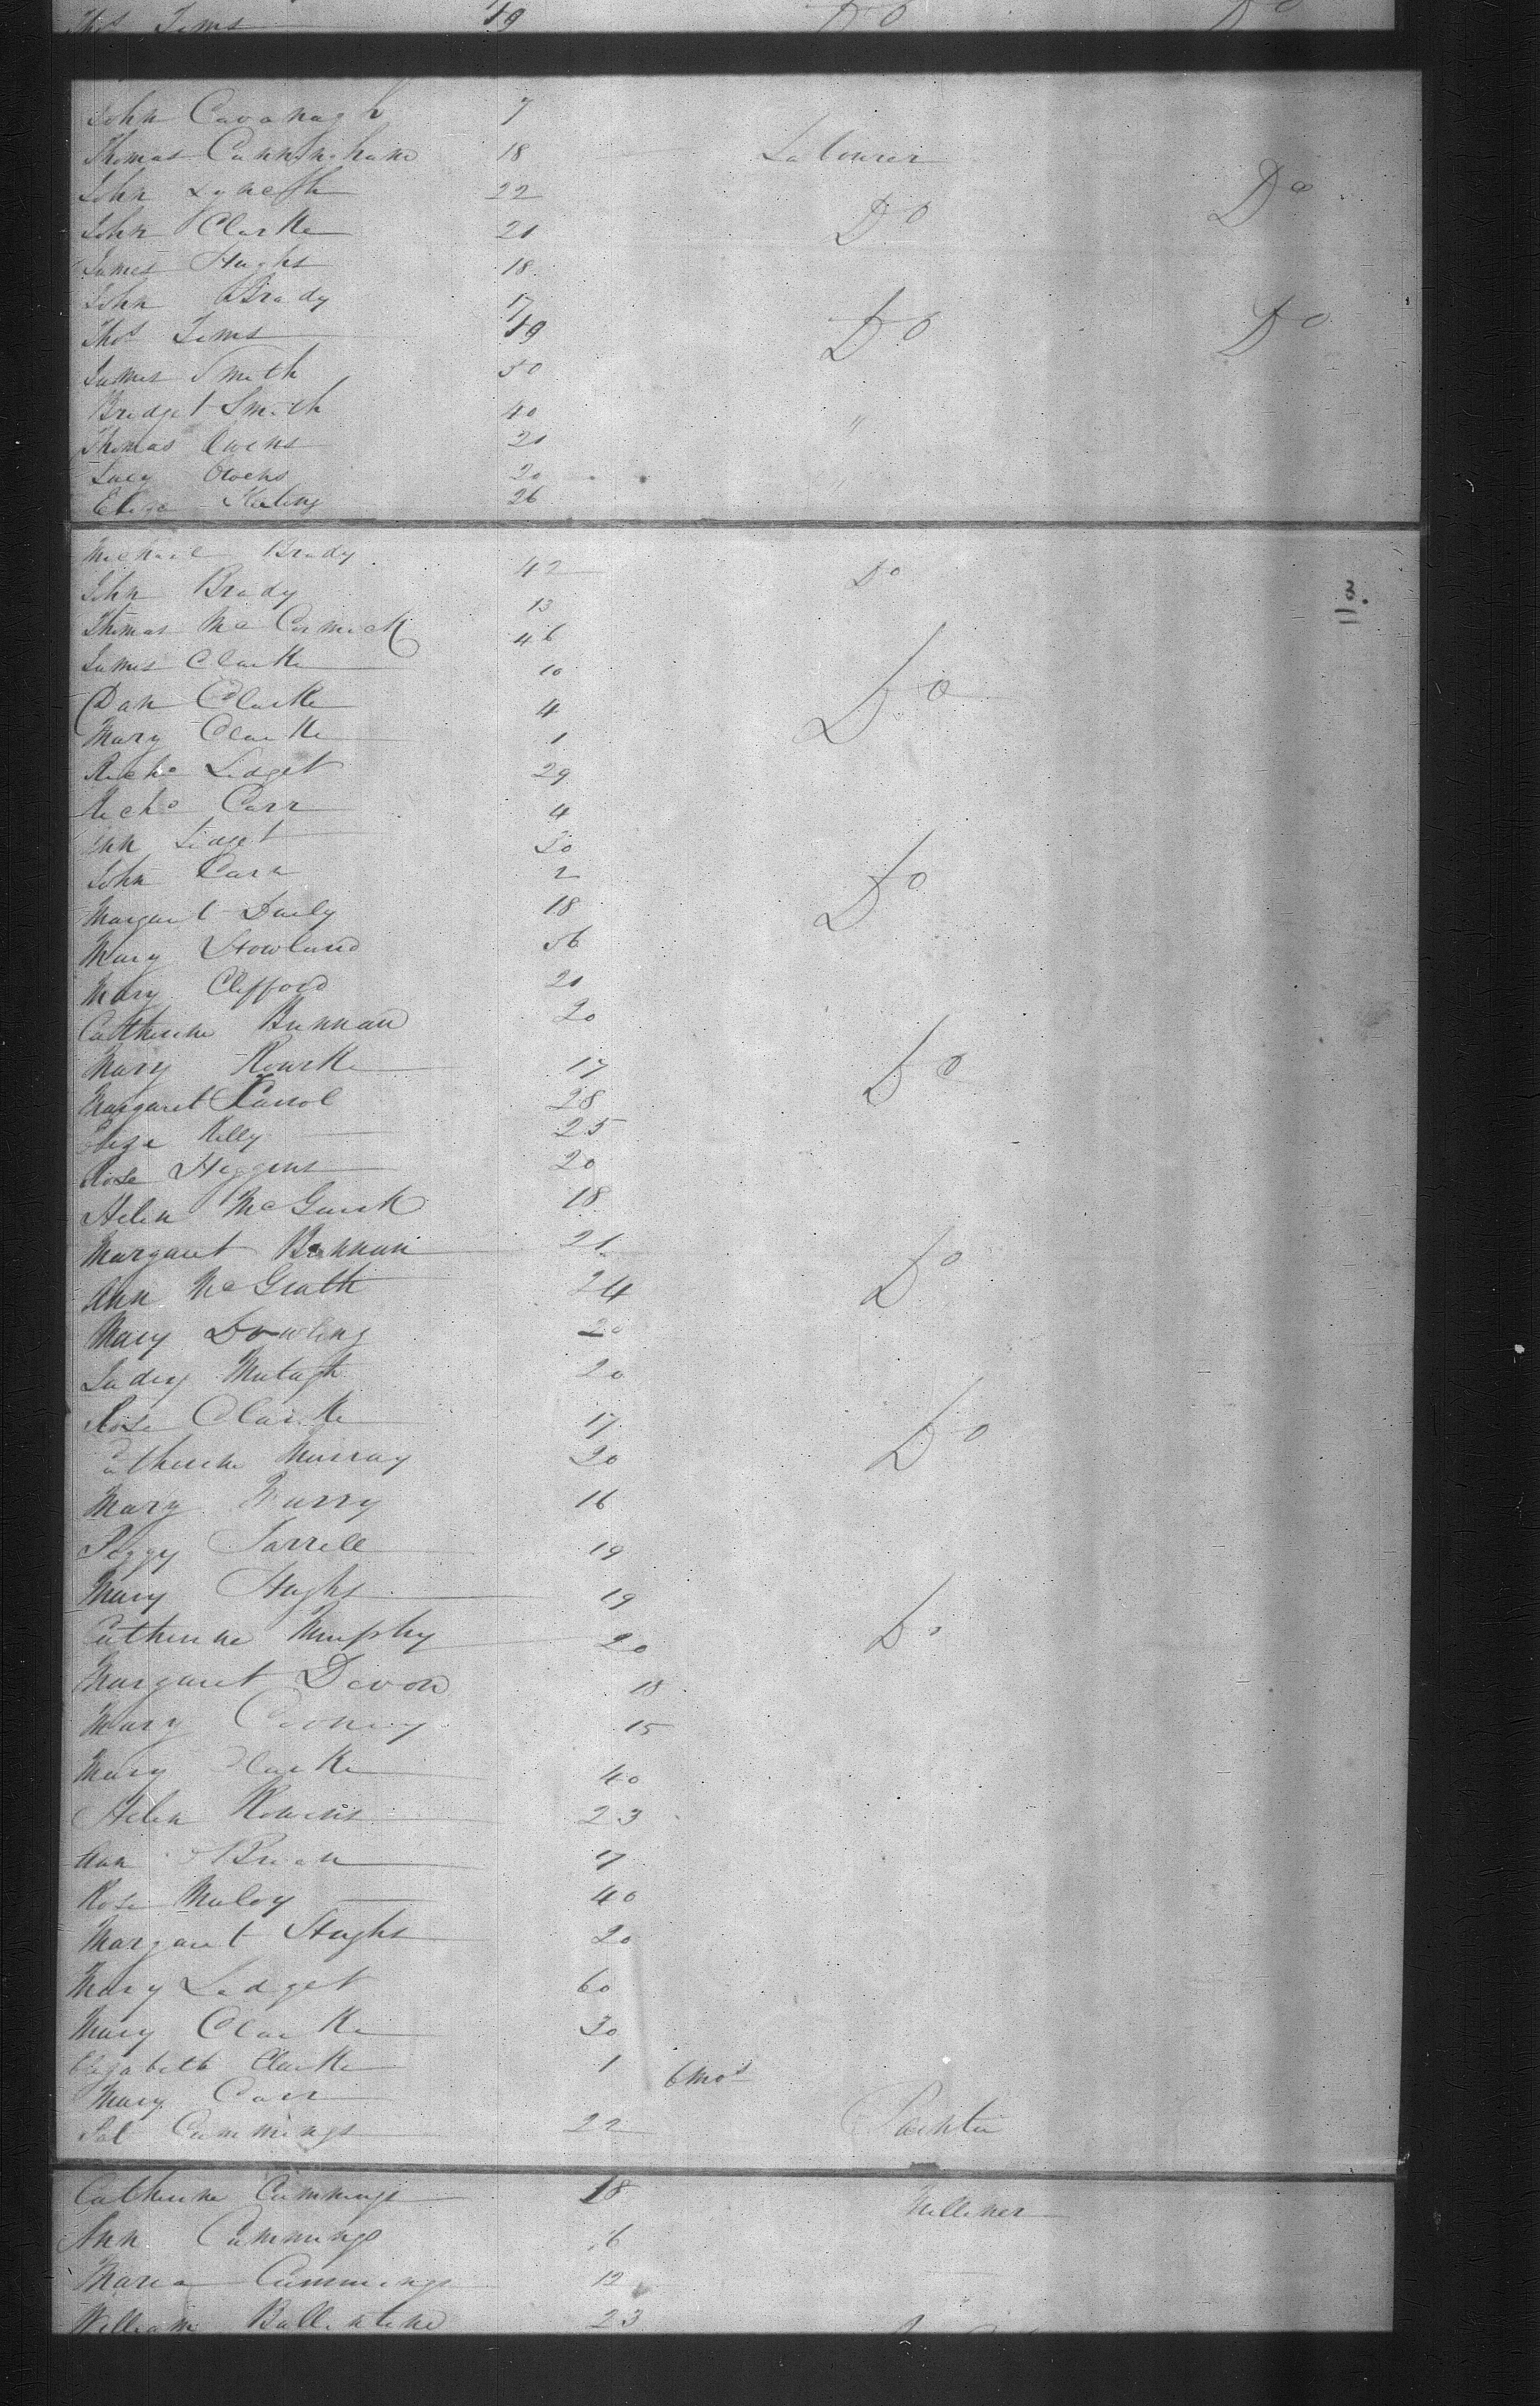 Thos Tims 19 Do Do
John Cavanagh 7
Thomas Cunningham 18 Labourer
John Lynch 22 Do
John Clarke 21 Do
James Hughs 18
John Brady 17
Thos Tims 19 Do Do
James Smith 50
Bridget Smith 40 "
Thomas Owens 21
Lucy Owens 20
Eliza Keating 26
Michael Brady 42 Do
John Brady 13 3.
Thomas McCormick 46
James Clarke 10
Dan Clarke 4 Do
Mary Clarke 1
Richd Lidget 29
Richd Carr 4
Ann Lidget 30
John Carr 2 Do
Margaret Daily 18
Mary Howland 56
Mary Clifford 21
Catherine Brennan 20
Mary Rourke 17 Do
Margaret Carrol 28
Eliza Kelly 25
Rose Higgens 20
Helen McGuirk 18
Margaret Brennan 21
Ann McGrath 24 Do
Mary Dowling 20
Judey Mutagh 20
Rose Clarke 17
Catherine Murray 20 Do
Mary Furry 16
Peggy Farrell 19
Mary Hughs 19
Catherine Murphy 20 Do
Margaret Devon 18
Mary Cooney 15
Mary Clarke 40
Helen 23
Ann OBrien 17
Rose Muloy 40
Margaret Hughs 20
Mary Lidget 60
Mary Clarke 30
Elizabeth Clarke 1
Mary Carr 6 mos
Pat Cummings 22 Painter
Catherine Cummings 18 Milliner
Ann Cummings 16
Maria Cummings 12
William Ballentine 23